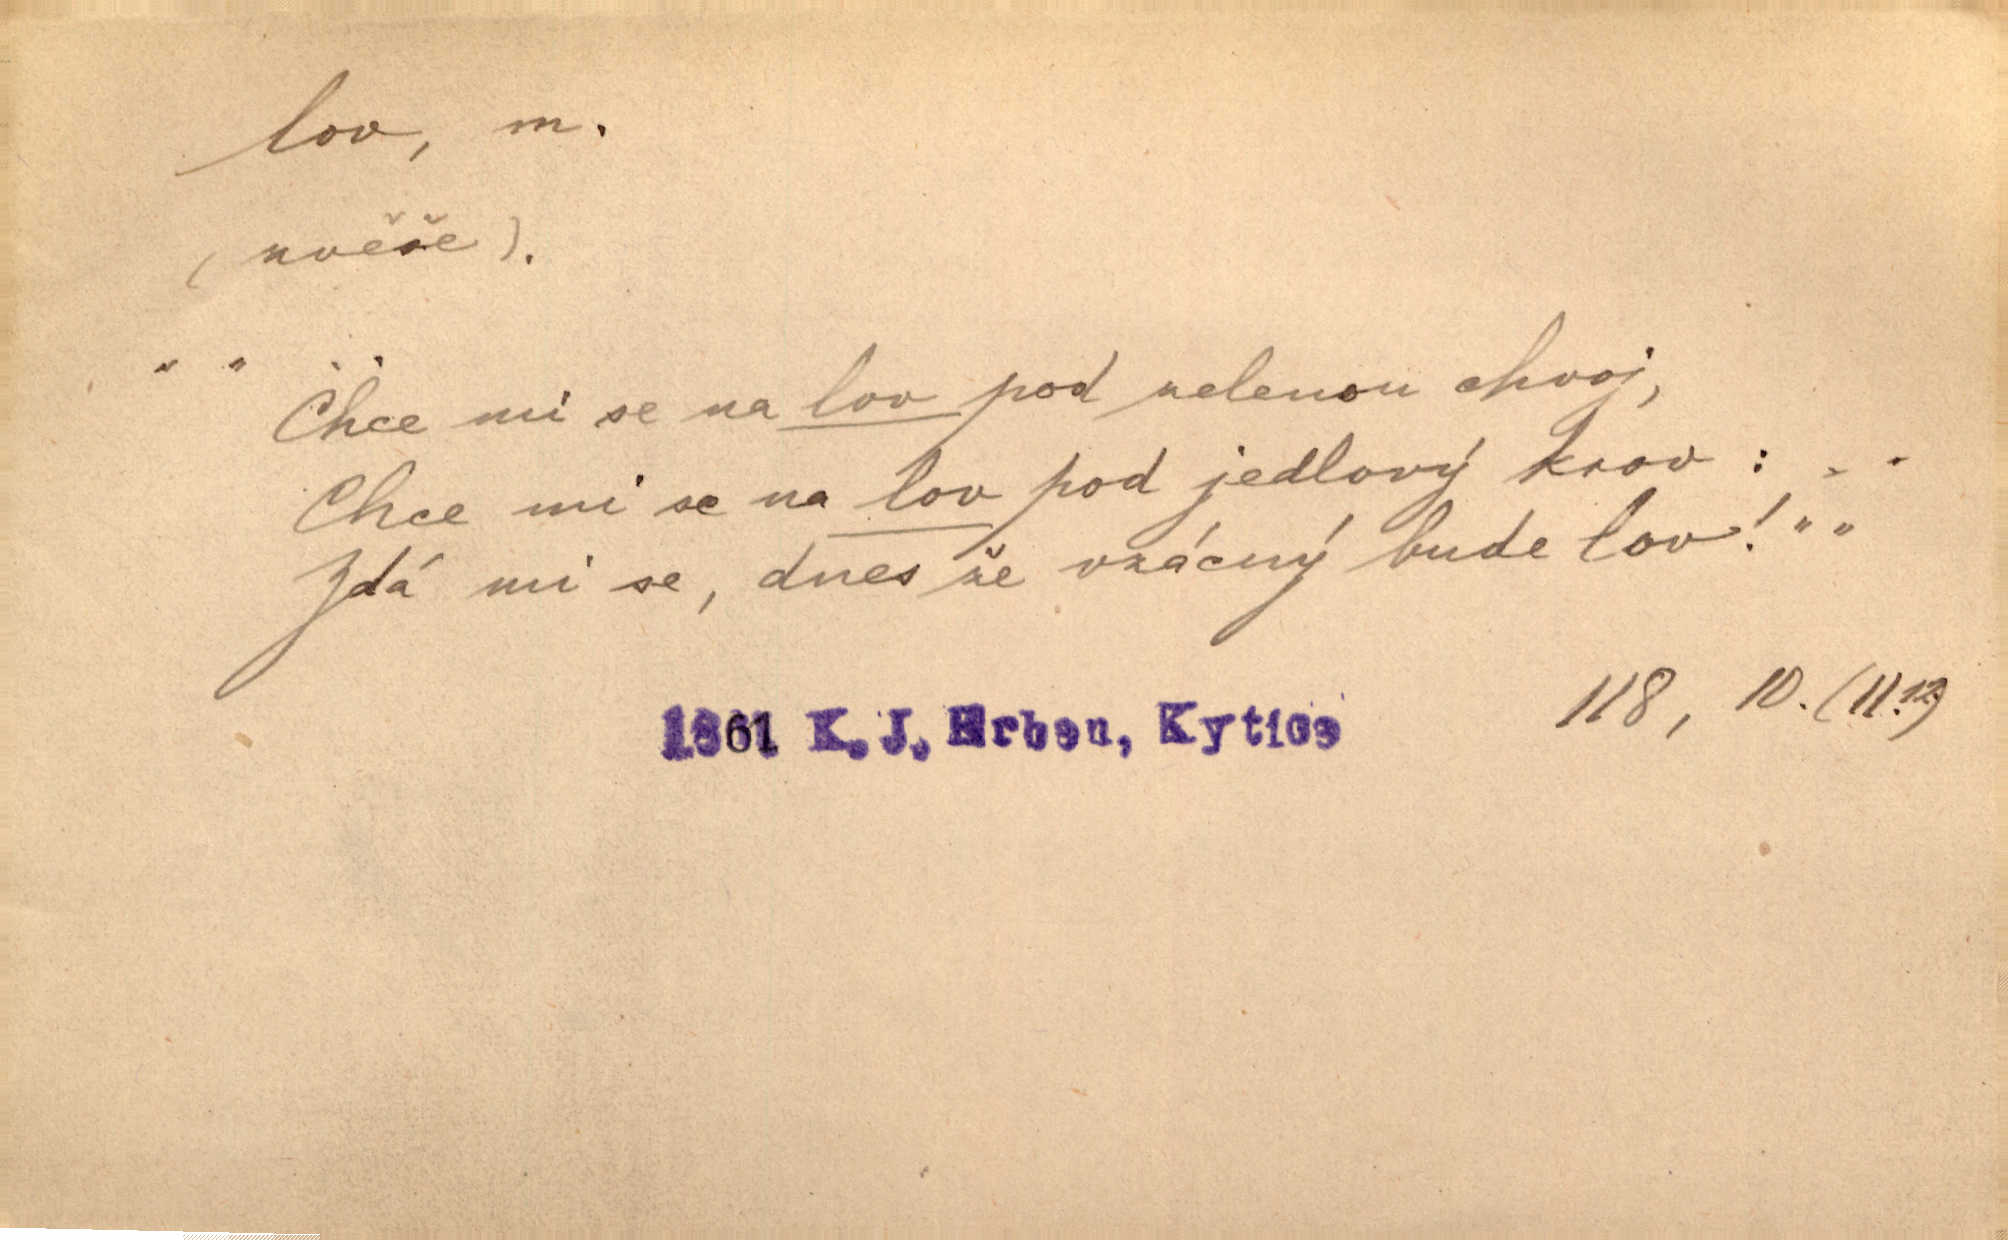 lov, m.
(zvěře).
" " Chce mi se na lov pod zelenou chvoj,
Chce mi se na lov pod jedlový krov : - -
Zdá mi se, dnes že vzácný bude lov! " "
118, 10. (11.12)
1861 K. J. Erben, Kytice